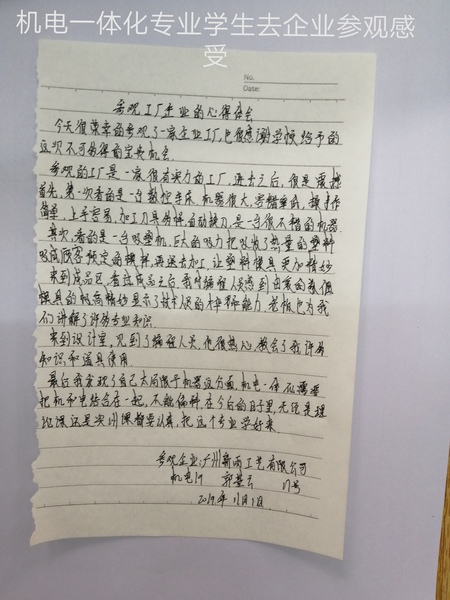 机电一体化专业学生去企业参观感
受
No.
Date:
参观工厂企业的心得体会
今天很荣幸的参观了一家企业工厂,也很感谢学校给予的
这次不可多得的宝贵机会
参观的工厂是一家很有实力的工厂,进去之后,很是震撼
首先,第一次看的是一台数控车床,机器很大,操作
简单,上手容易,加工刀具多样,自动换刀,是一台很不错的机器
其次,看的是一台吸塑机,巨大的吸力把吸发了热量的塑料
吸成顾客预定的模样,再送去加工,让塑料模具更加精妙
来到成品区,看过成品之后,我对编程人员感到由衷的敬佩
模具的极高精妙显示了技术人员的能力,老板也为我
们讲解了许多专业知识.
来到设计室,见到了编程人员,也很热心,教会了我许多
知识和道具使用
最后我发现了自己太局限于机器这方面,机电一体化需要
把机和电结合在一起,不能偏科,在今后的日子里,无论是理
论课还是实训课都要认真,把这个专业学好来.
参观企业:广州新雨工艺有限公司
机电19 17号
2019年11月1日